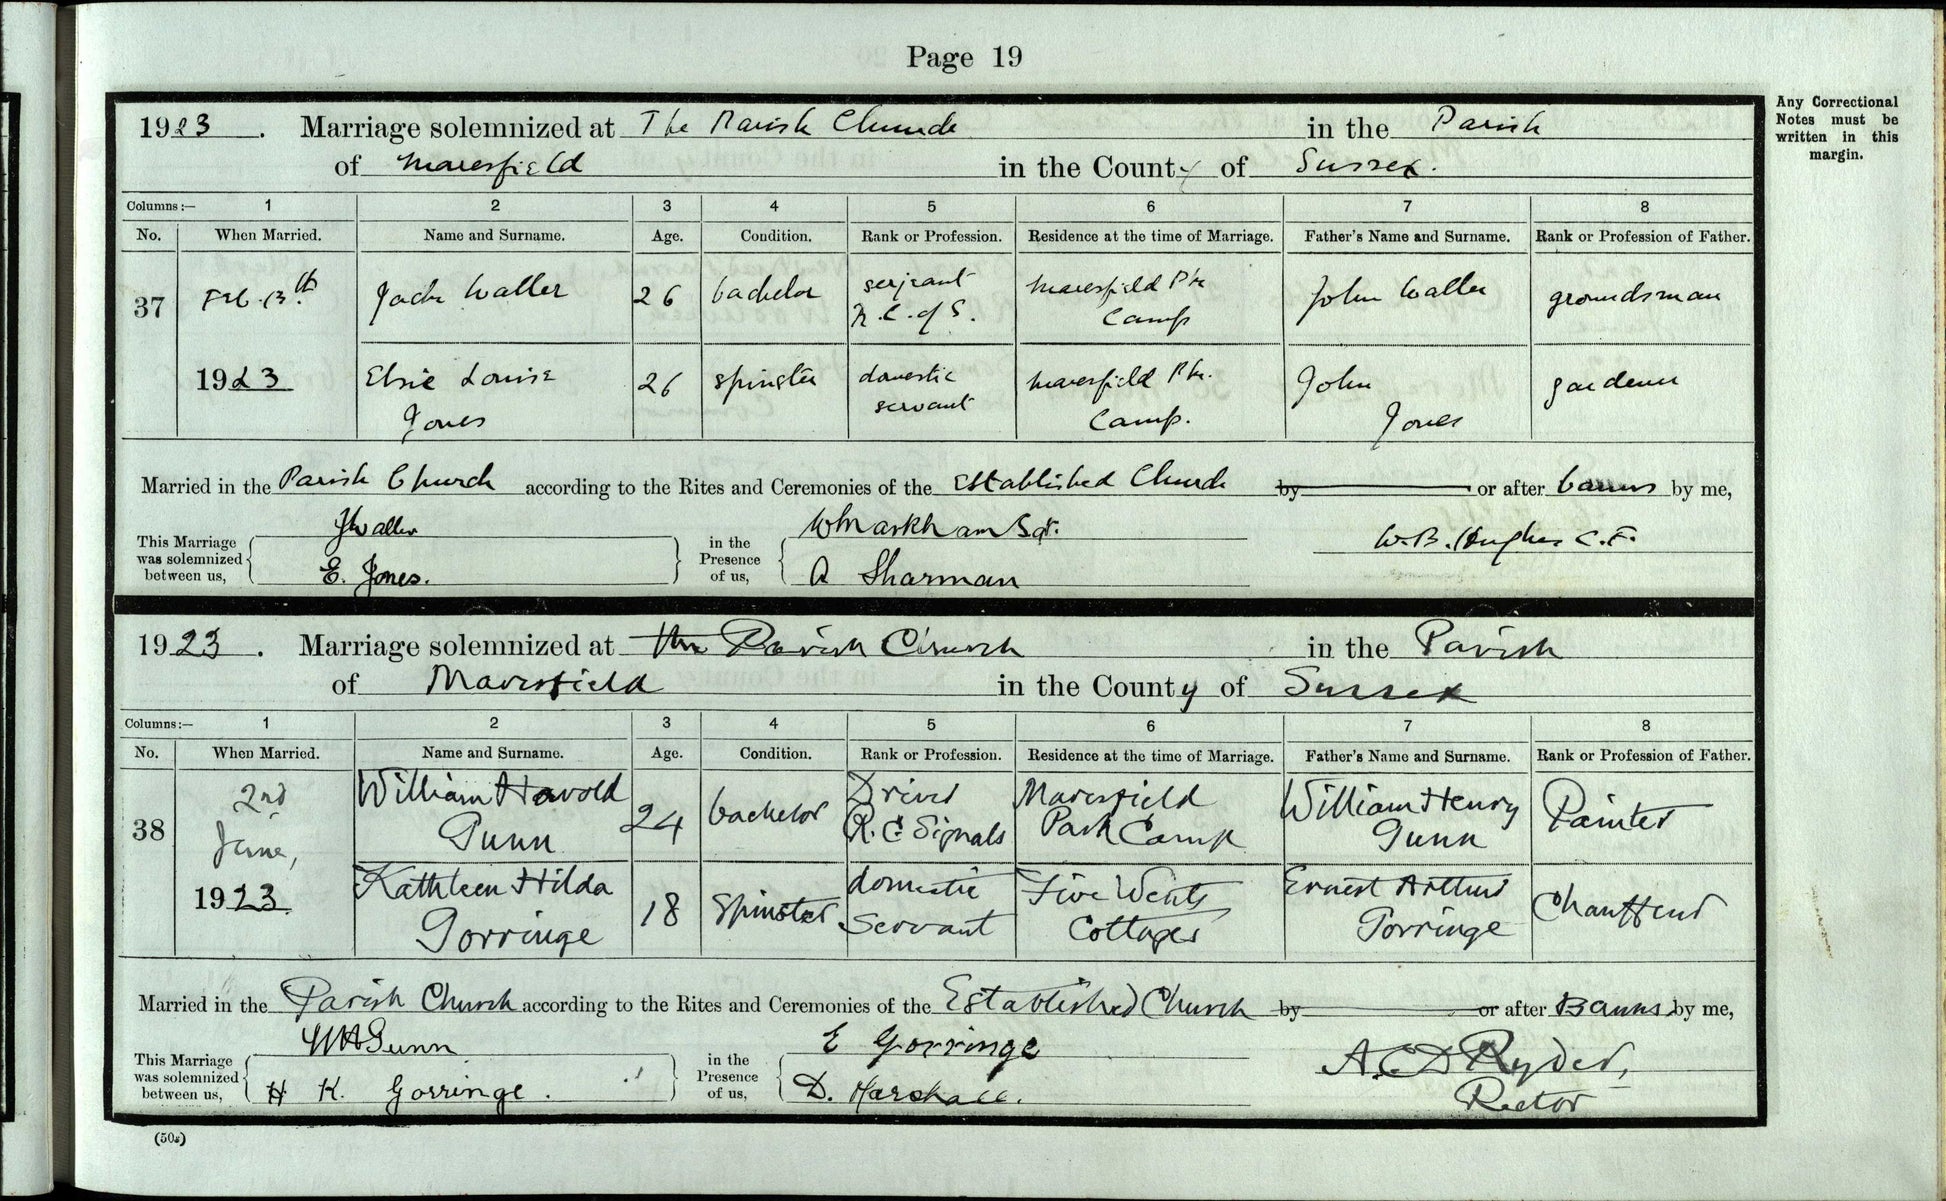 Page 19
Any Correctional
Notes must be
written in this
margin.
1923. Marriage solemnized at The Parish Church in the Parish
of Maresfield in the County of Sussex.
Columns:— 1 2 3 4 5 6 7 8
No. When Married. Name and Surname. Age. Condition. Rank or Profession. Residence at the time of Marriage. Father's Name and Surname. Rank or Profession of Father.
37 Feb. 13th Jack Waller 26 bachelor serjeant R.C. of S. Maresfield Pk. Camp John Waller groundsman
1923 Elsie Louise Jones 26 spinster domestic servant Maresfield Pk. Camp. John Jones gardener
Married in the Parish Church according to the Rites and Ceremonies of the Established Church by or after banns by me,
This Marriage was solemnized between us, JWaller E. Jones. in the Presence of us, WMarkham Sgt. A Sharman W.B. Hughes C.F.
1923. Marriage solemnized at the Parish Church in the Parish
of Maresfield in the County of Sussex
Columns:— 1 2 3 4 5 6 7 8
No. When Married. Name and Surname. Age. Condition. Rank or Profession. Residence at the time of Marriage. Father's Name and Surname. Rank or Profession of Father.
38 2nd June, William Harold Gunn 24 bachelor Driver R.C. Signals Maresfield Park Camp William Henry Gunn Painter
1923 Kathleen Hilda Gorringe 18 Spinster domestic Servant Five Wents Cottages Ernest Arthur Gorringe Chauffeur
Married in the Parish Church according to the Rites and Ceremonies of the Established Church by or after Banns by me,
This Marriage was solemnized between us, WHGunn H K. Gorringe. in the Presence of us, E Gorringe D. Marshall. A.C.D Ryder, Rector
(50s)